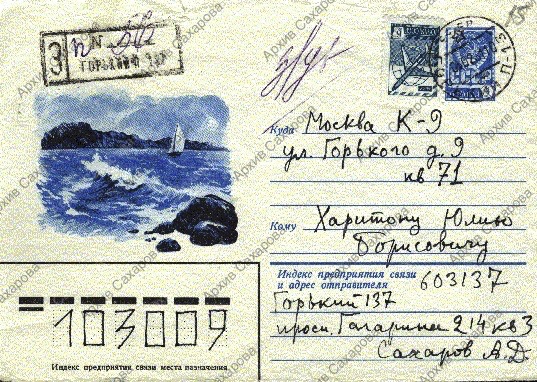 З
ГОРЬКИЙ 137
Куда Москва К-9
ул. Горького д. 9
кв 71
Кому Харитону Юлию
Борисовичу
Индекс предприятия связи
и адрес отправителя 603137
Горький 137
просп. Гагарина 214 кв 3
Сахаров А.Д.
103009
Индекс предприятия связи места назначения
Архив Сахарова